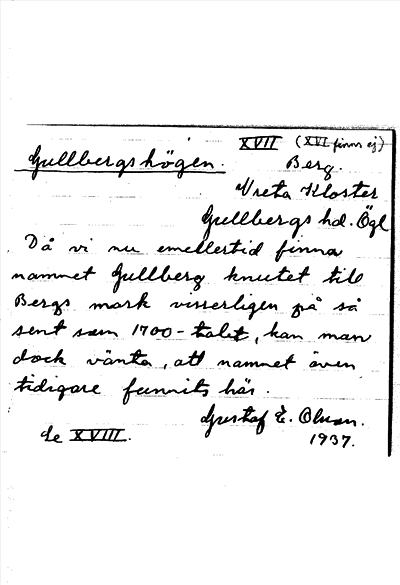 XVII (XVI finns ej)
Gullbergshögen. Berg.
Vreta Kloster
Gullbergs hd. Ögl
Då vi nu emellertid finna
namnet Gullberg knutet till
Bergs mark visserligen på så
sent som 1700-talet, kan man
dock vänta, att namnet även
tidigare funnits här.
Gustaf E. Olsson.
1937.
se XVIII.